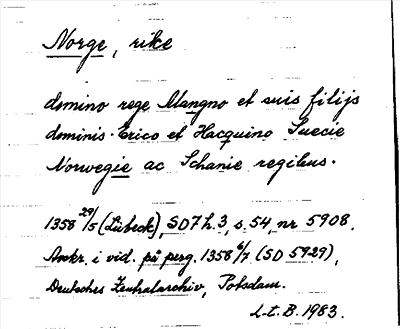 Norge, rike
domino rege Mangno et suis filijs
dominis Erico et Hacquino Suecie
Norwegie ac Schanie regibus.
1358 29/5 (Lübeck), SD7 h.3, s. 54, nr 5908.
Avskr. i vid. på perg. 1358 6/7 (SD 5929),
Deutsches Zentralarchiv, Potsdam.
L.t.B. 1983.